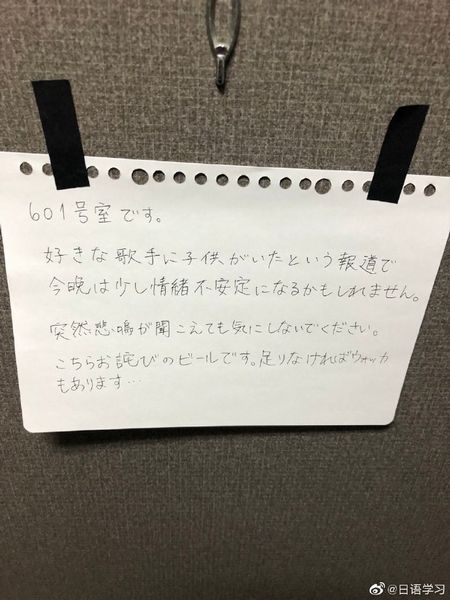 601号室です。
好きな歌手に子供がいたという報道で
今晩は少し情緒不安定になるかもしれません。
突然悲鳴が聞こえても気にしないでください。
こちらお詫びのビールです。足りなければウォッカ
もあります…
@日语学习